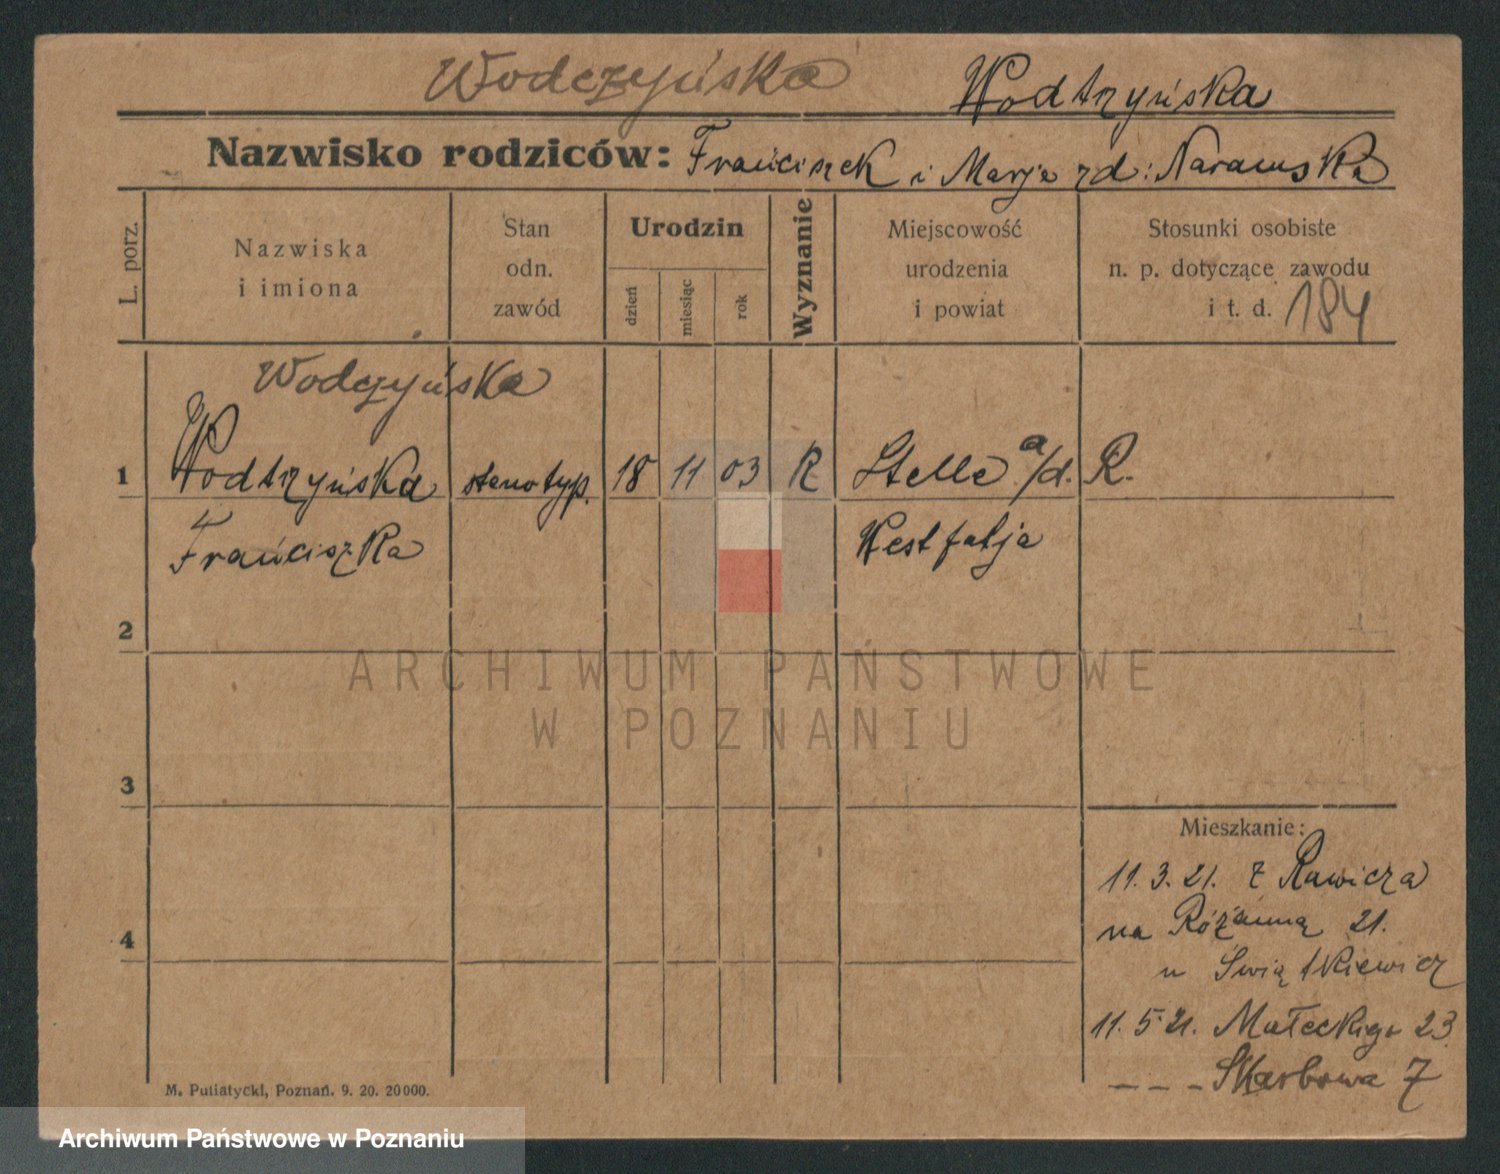 Wodczyńska Wodtzyńska
Nazwisko rodziców: Franciszek i Marja zd: Naramska
L. porz.
Nazwiska
i imiona
Stan
odn.
zawód
Urodzin
dzień
miesiąc
rok
Wyznanie
Miejscowość
urodzenia
i powiat
Stosunki osobiste
n. p. dotyczące zawodu
i t. d. 184
Wodczyńska
1 Wodtzyńska stenotyp. 18 11 03 R Stelle a/d. R.
Franciszka Westfalja
2
3
4
Mieszkanie:
11. 3. 21. z Rawicza
na Różanną 21.
u Świątkiewicz
11. 5. 21. Małeckiego 23
- - - Skarbowa 7
M. Putiatycki, Poznań. 9. 20. 20000.
ARCHIWUM PAŃSTWOWE
W POZNANIU
Archiwum Państwowe w Poznaniu